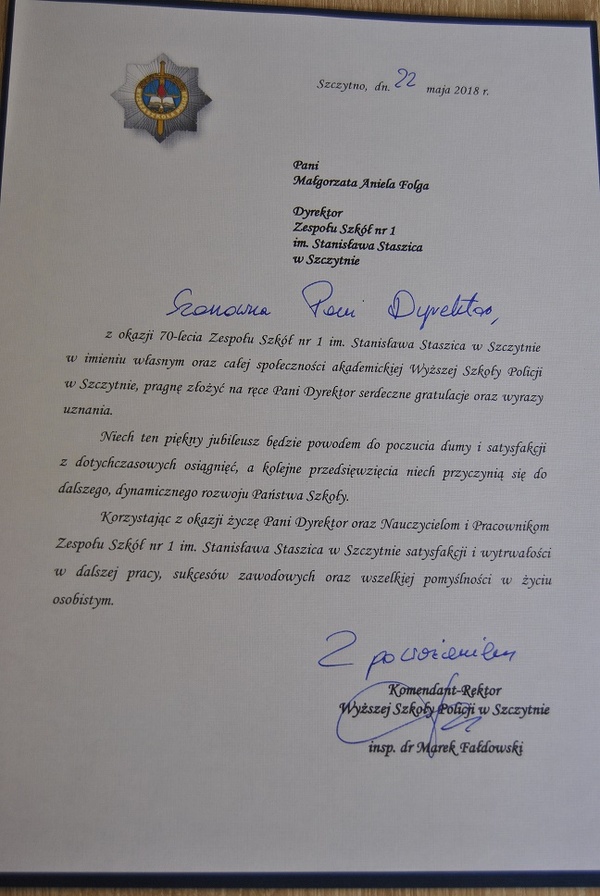 Szczytno, dn. 22 maja 2018 r.
Pani
Małgorzata Aniela Folga
Dyrektor
Zespołu Szkół nr 1
im. Stanisława Staszica
w Szczytnie
Szanowna Pani Dyrektor,
z okazji 70-lecia Zespołu Szkół nr 1 im. Stanisława Staszica w Szczytnie
w imieniu własnym oraz całej społeczności akademickiej Wyższej Szkoły Policji
w Szczytnie, pragnę złożyć na ręce Pani Dyrektor serdeczne gratulacje oraz wyrazy
uznania.
Niech ten piękny jubileusz będzie powodem do poczucia dumy i satysfakcji
z dotychczasowych osiągnięć, a kolejne przedsięwzięcia niech przyczynią się do
dalszego, dynamicznego rozwoju Państwa Szkoły.
Korzystając z okazji życzę Pani Dyrektor oraz Nauczycielom i Pracownikom
Zespołu Szkół nr 1 im. Stanisława Staszica w Szczytnie satysfakcji i wytrwałości
w dalszej pracy, sukcesów zawodowych oraz wszelkiej pomyślności w życiu
osobistym.
Z poważaniem
Komendant-Rektor
Wyższej Szkoły Policji w Szczytnie
insp. dr Marek Fałdowski